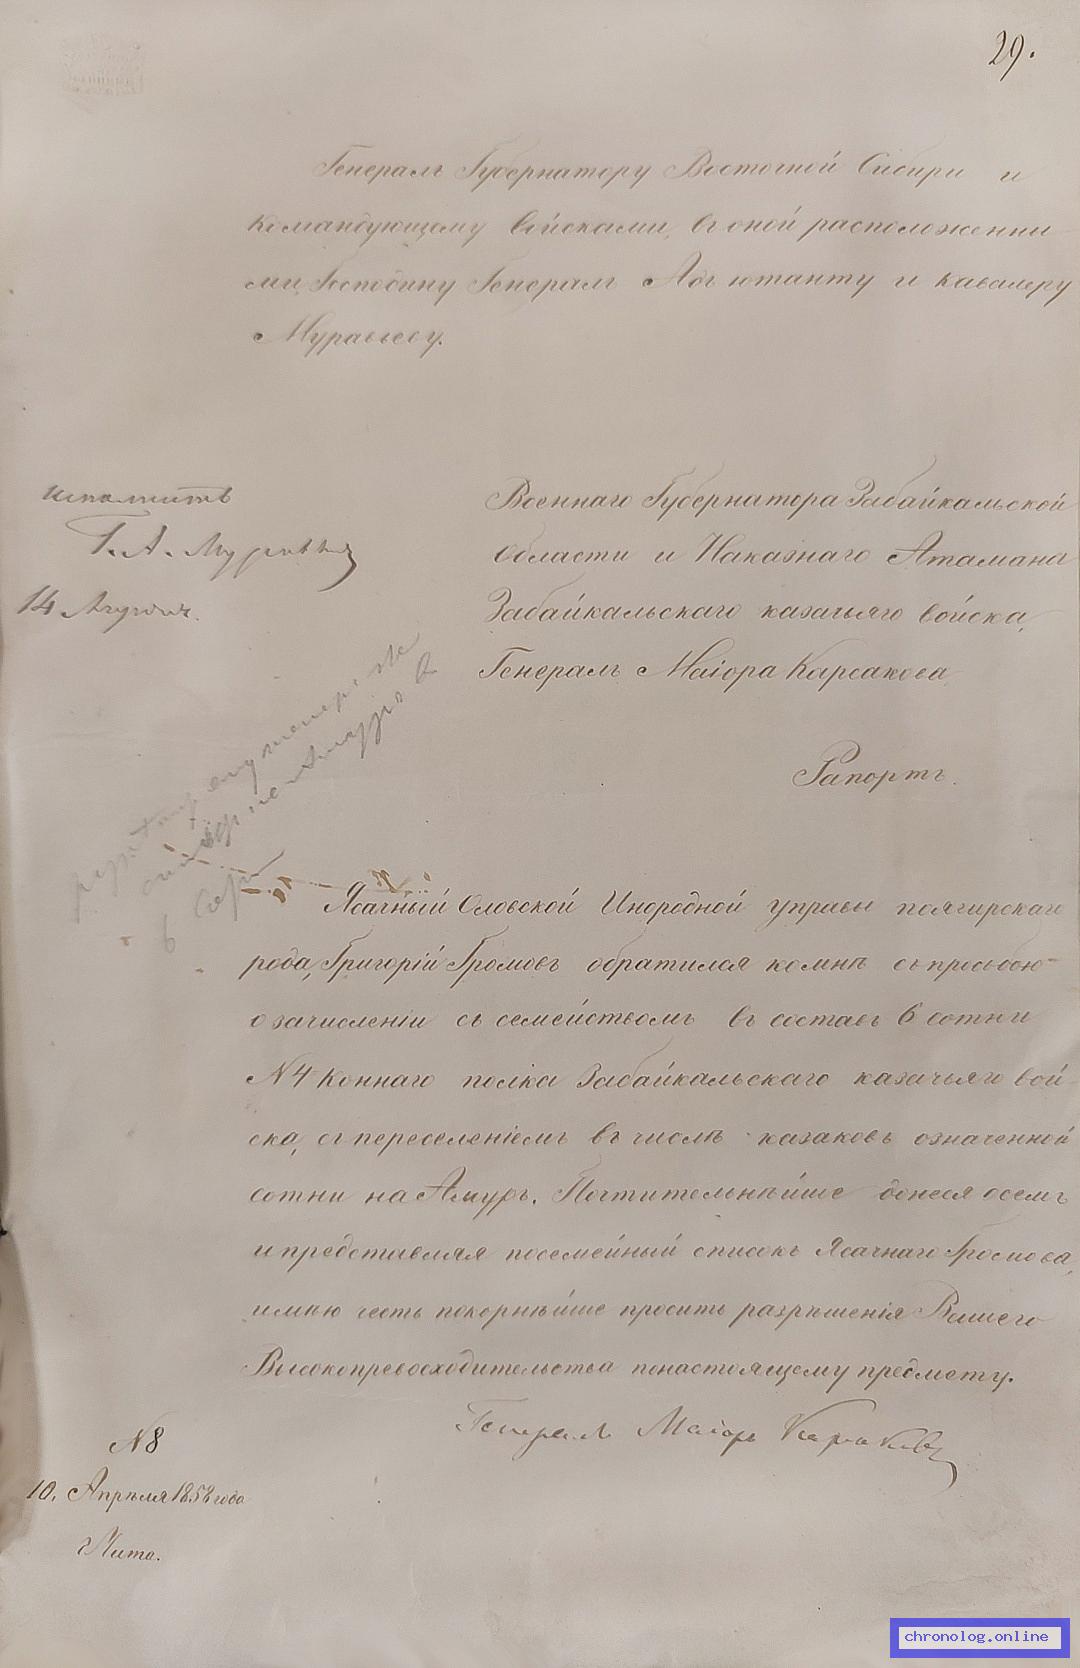 29.
Генералъ Губернатору Восточной Сибири и
командующему войсками, въ оной расположенны-
ми, Господину Генералъ Адъютанту и кавалеру
Муравьеву.
Военнаго Губернатора Забайкальской
области и Наказнаго Атамана
Забайкальскаго казачьяго войска,
Генералъ Маіора Карсакова
Рапортъ.
исполнить
Г. А. Муравьевъ
14
Ясачный Оловской Инородной управы
рода, Григорій Громовъ обратился комнѣ съ просьбою
о зачисленіи съ семействомъ въ составъ 6 сотни
N4 Коннаго полка Забайкальскаго казачьяго вой-
ска, съ переселеніемъ въ числѣ казаковъ означенной
сотни на Амуръ. Почтительнѣйше донося о семъ
и представляя посемейный списокъ Ясачнаго Громова,
имѣю честь покорнѣйше просить разрѣшенія Вашего
Высокопревосходительства понастоящему предмету.
Генералъ Маіоръ Карсаковъ
N8
10. Апрѣля 1858 года
г. Чита.
chronolog.online